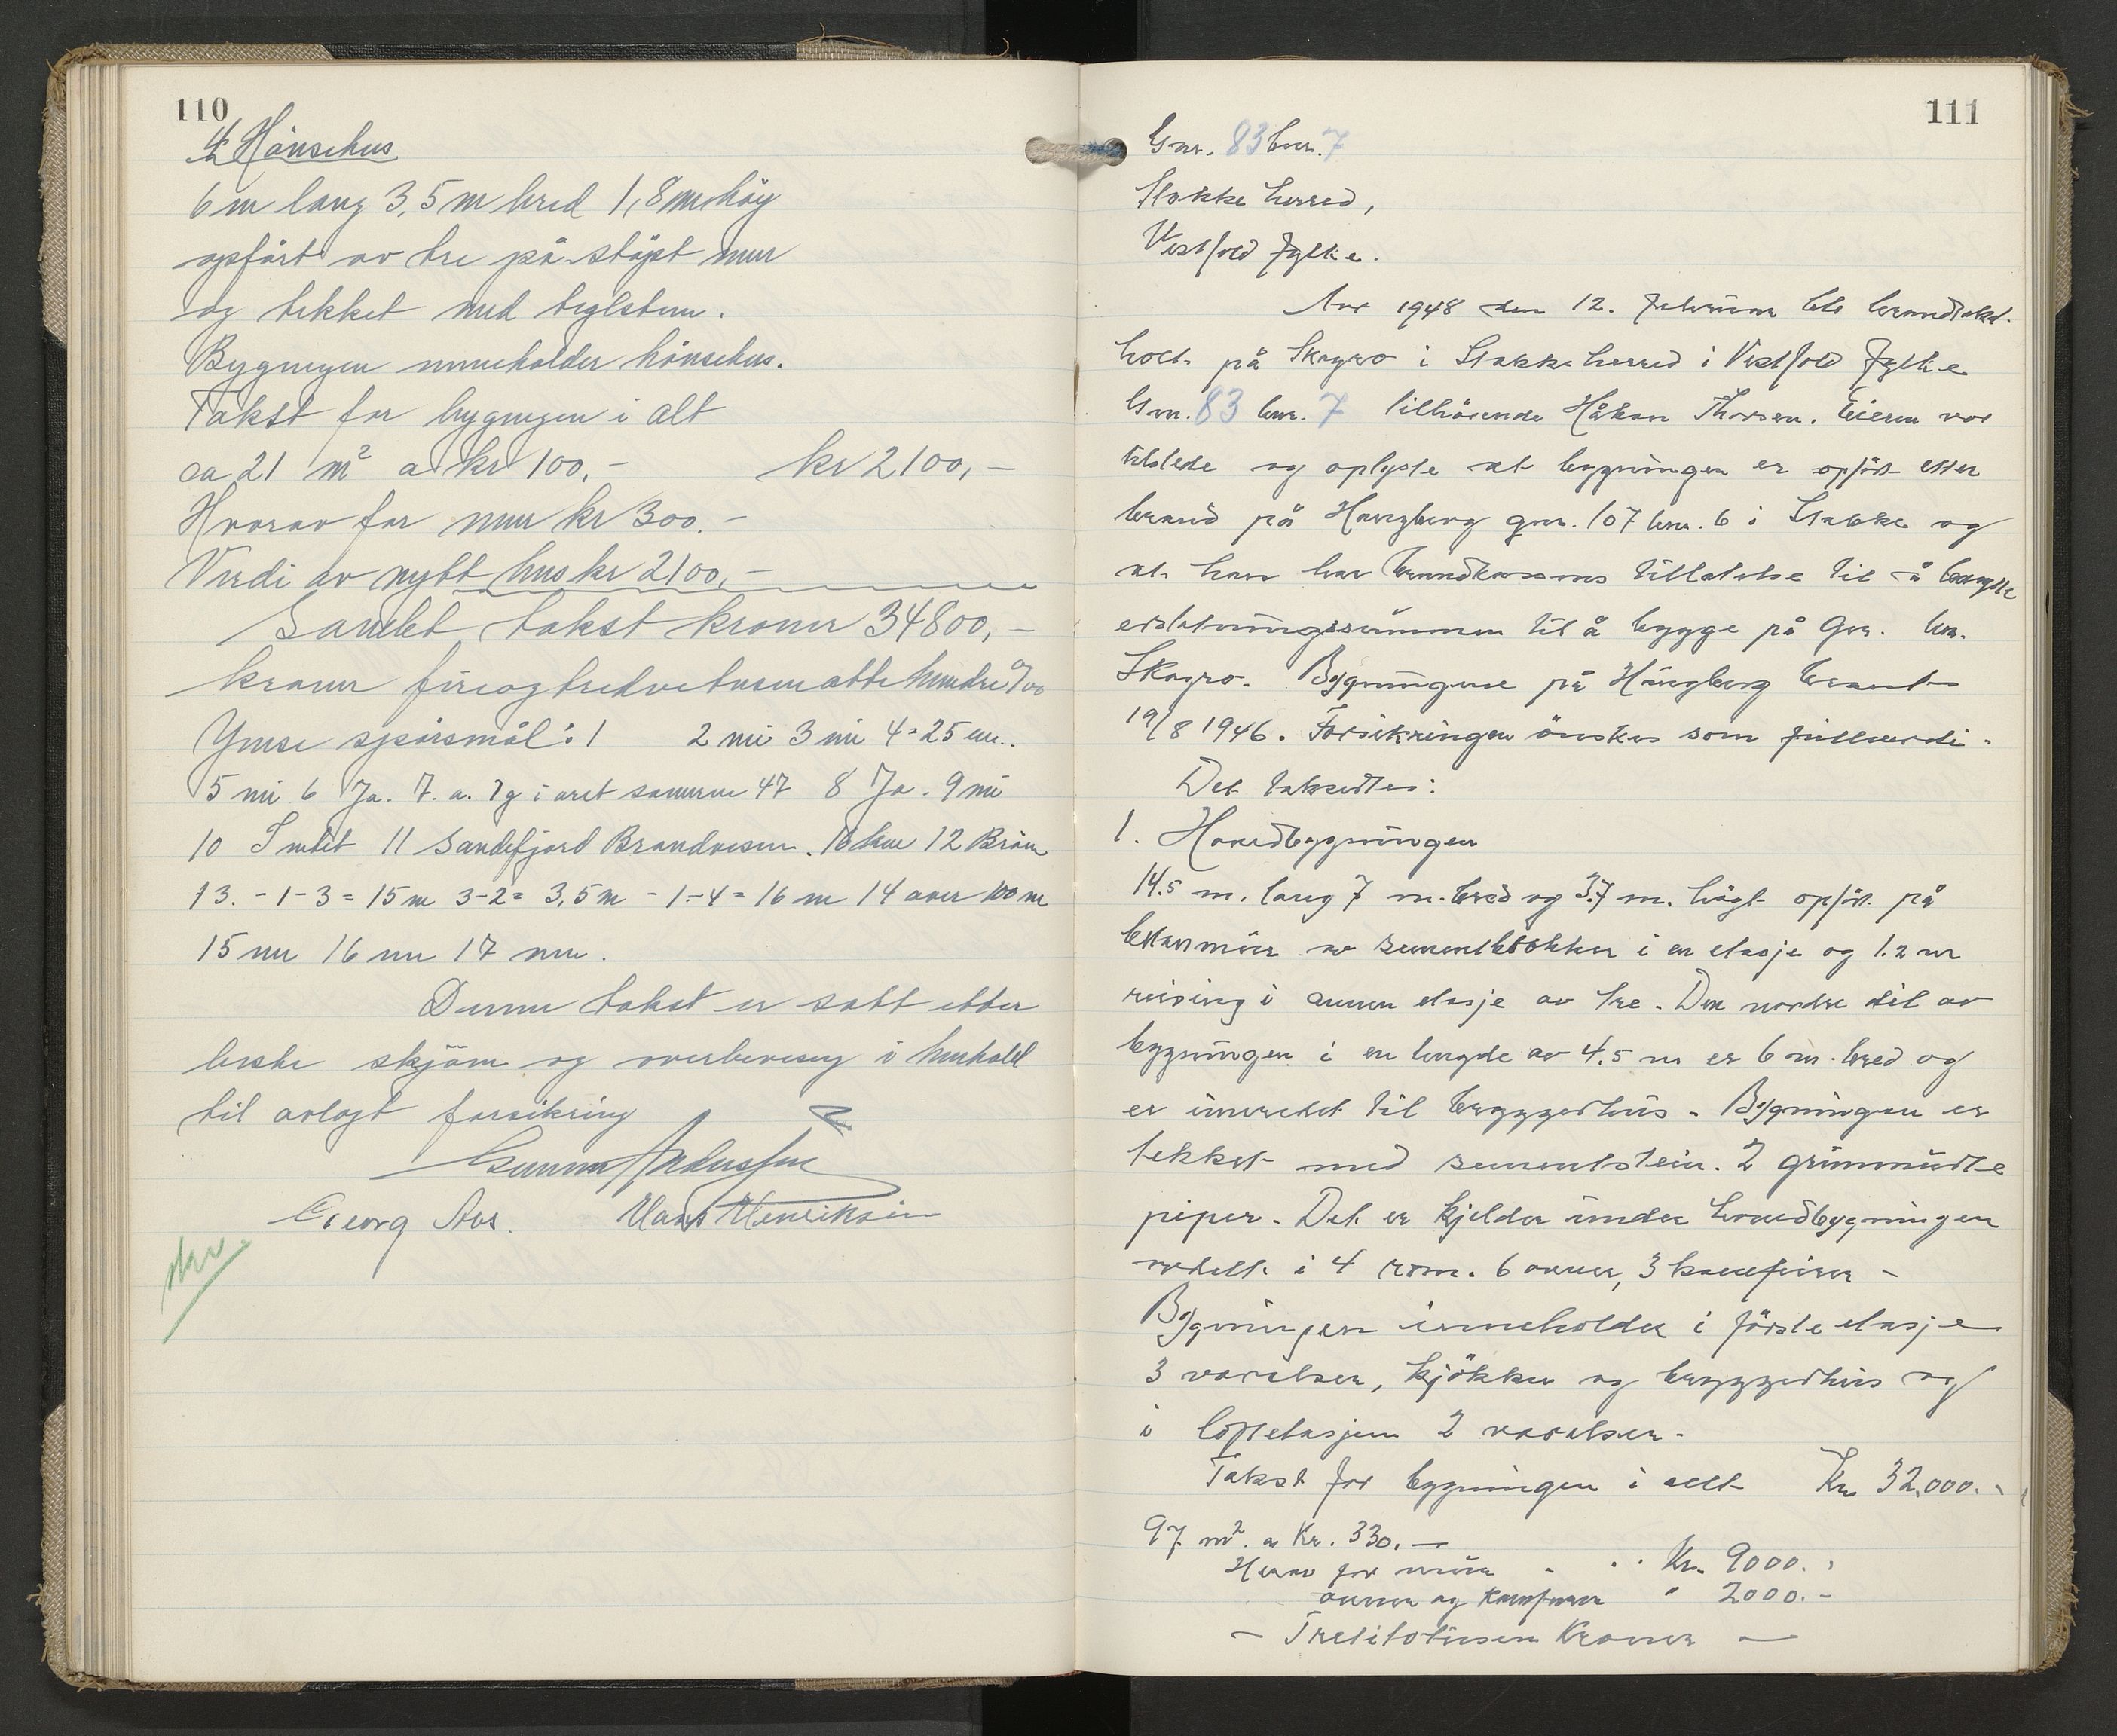 110
4/ Hönsehus
6 m lang 3,5 m bred 1,8 m höy
opfört av tre på stöpt mur
og tekket med teglsten.
Bygningen inneholder hönsehus.
Takst for bygningen i alt
ca 21 m² a kr 100,- kr 2100,-
Hvorav for mur kr 300.-
Verdi av nytt hus kr 2100,-
Samlet takst kroner 34800,-
kroner fireogtredvetusenottehundre 0/00
Ymse spörsmål: 1 2 nei 3 nei 4 = 25 cm.
5 nei 6 Ja. 7. a. Og i aret sommeren 47 8 Ja. 9 nei
10 Intet 11 Sandefjord Brandvesen. 16 km 12 Brönn
13. - 1-3 = 15 m 3-2 = 3,5 m - 1-4 = 16 m 14 over 100 m
15 nei 16 nei 17 nei.
Denne takst er satt etter
beste skjönn og overbevisng i henhold
til avlagt forsikring
Gunnar Anderssen
Georg Aas. Hans Henriksen
111
Gnr. 83 bnr. 7
Stokke herred,
Vestfold fylke.
Aar 1948 den 12. februar ble branntakst
holt på Skogro i Stokke herred i Vestfold fylke
Gnr. 83 bnr. 7 tilhörende Håkon Thorsen. Eieren var
tilstede og oplyste at bygningen er opfört etter
brand på Haugberg gnr. 107 bnr. 6 i Stokke og
at han har Brandkassens tillatelse til å benytte
erstatningssummen til å bygge på gnr. bnr.
Skogro. Bygningene på Haugberg brant
19/8 1946. Forsikringen önskes som fullverdi.
Det takseres:
1. Hovedbygningen
14.5 m. lang 7 m. bred og 3.7 m. högt opfört på
betonmur av sementblokker i en etasje og 1.2 m
reising i annen etasje av tre. Den nordre del av
bygningen i en lengde av 4.5 m er 6 m. bred og
er innredet til bryggerhus. Bygningen er
tekket med sementstein. 2 grunnmurte
piper. Det er kjelder under hovedbygningen
avdelt i 4 rom. 6 ovner, 3 komfirer -
Bygningen inneholder i förste etasje
3 værelser, kjökken og bryggerhus og
i loftetasjen 2 værelser.
Takst for bygningen i allt Kr. 32.000.-
97 m². a Kr. 330.-
Herav for mur Kr. 9000.-
ovner og komfirer " 2000.-
- Trettitotusen Kroner -